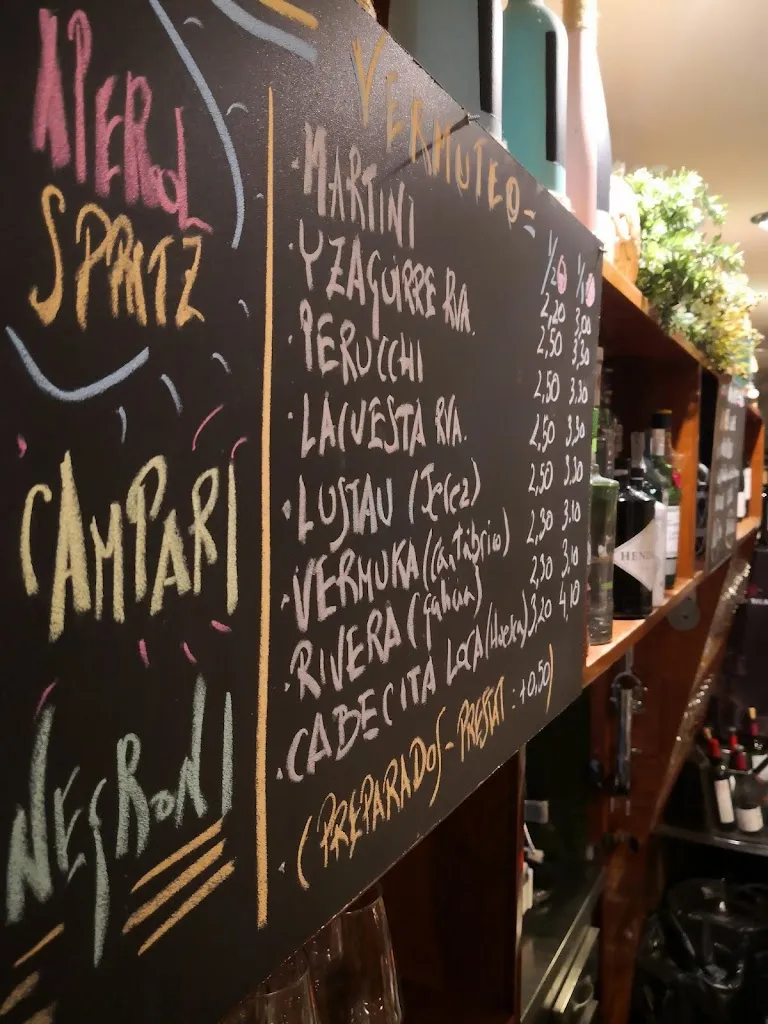 APEROL
SPRITZ
CAMPARI
NEGRONI
VERMUTEO-
1/2 1/1
·MARTINI 2,20 3,00
·YZAGUIRRE RVA. 2,50 3,30
·PERUCCHI 2,50 3,30
·LACUESTA RVA. 2,50 3,30
·LUSTAU (Jerez) 2,50 3,30
·VERMUKA (Cantabrio) 2,30 3,10
·RIVERA (Galicia) 2,30 3,10
·CABECITA LOCA (Huesca) 3,20 4,10
·(PREPARADOS - PRESSAT: +0,50)
HEND